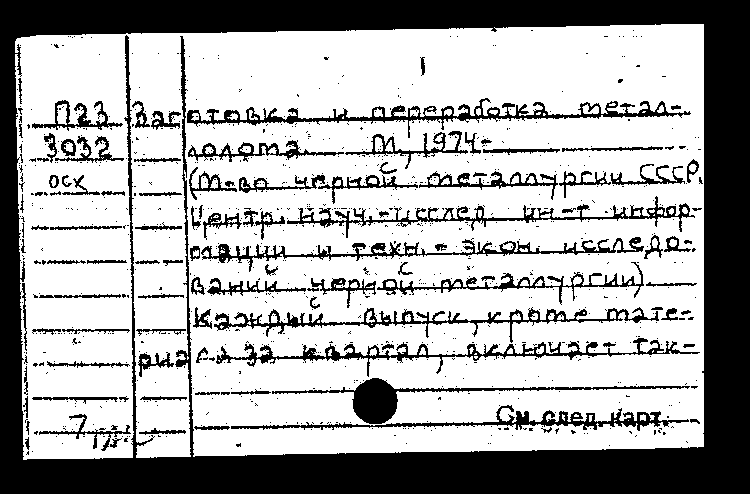 1
П23 Заготовка и переработка метал-
3032 лолома. М., 1974-
осх (М-во черной металлургии СССР.
Центр. науч.-исслед. ин-т инфор-
мации и техн.-экон. исследо-
ваний черной металлургии).
Каждый выпуск, кроме мате-
риала за квартал, включает так-
7
См. след. карт.